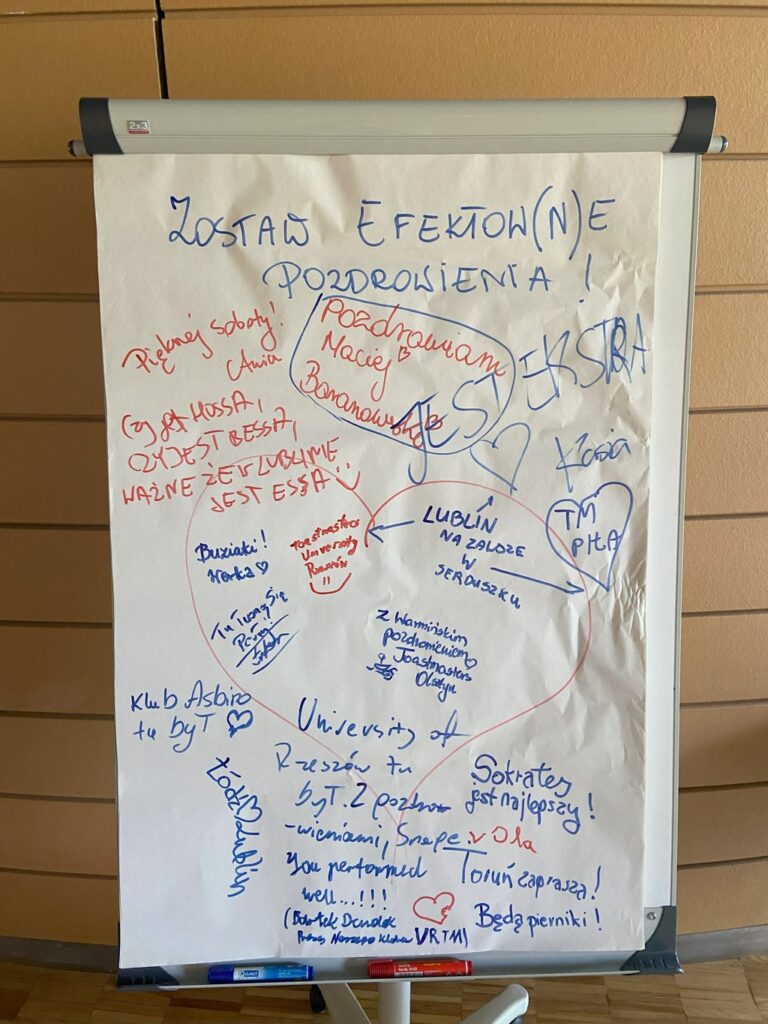 2x3
ZOSTAW EFEKTOW(N)E
POZDROWIENIA!
Pięknej soboty!
Ania
Pozdrawiam
Maciej B
JEST EKSTRA
Kasia
Czy jest HOSSA,
CZY JEST BESSA,
WAŻNE ŻE W LUBLINIE
JEST ESSA
TM
PIŁA
LUBLIN
NA ZALOZE
W
SERDUSZKU
Toastmasters
University
Rzeszów
Buziaki!
Tu
Się
Z Warmińskim
pozdrowieniem
Toastmasters
Olsztyn
Klub Asbiro
tu byT
Łódź Lublin
University of
Rzeszów tu
byT. Z pozdro-
-wieniami, Snape.
You performed
well...!!!
Sokrates
jest najlepszy!
Ola
Toruń zaprasza!
Będą pierniki!
VRTM